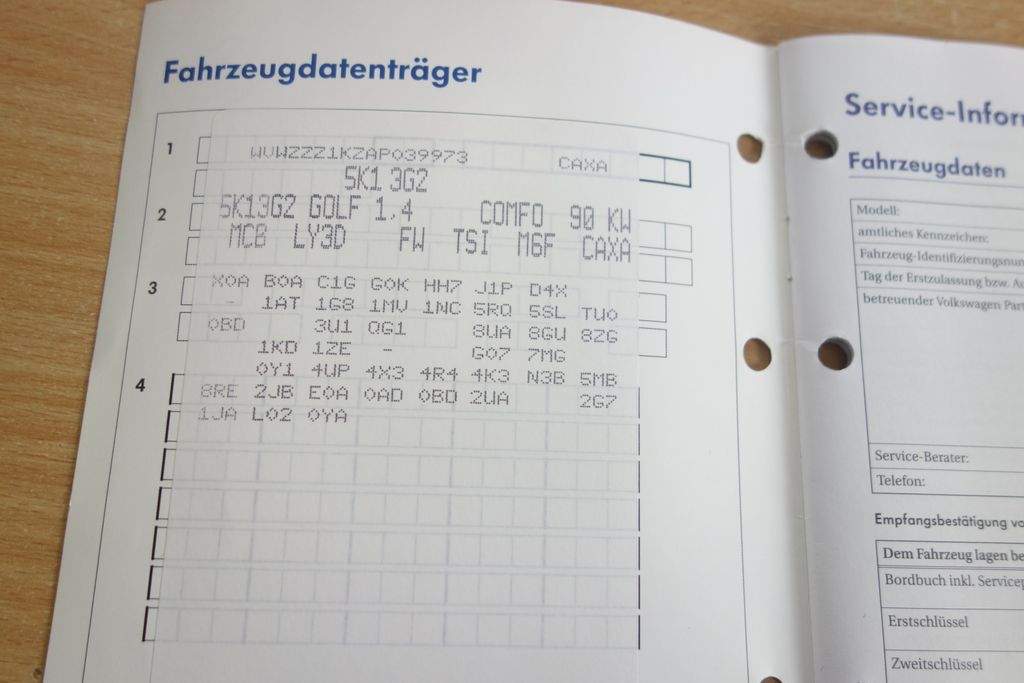 Fahrzeugdatenträger
1
WVWZZZ1KZAP039973 CAXA
5K1 3G2
2
5K13G2 GOLF 1,4 COMFO 90 KW
MCB LY3D FW TSI M6F CAXA
3
X0A B0A C1G G0K HH7 J1P D4X
- 1AT 1G8 1MV 1NC 5RQ 5SL TU0
0BD 3U1 QG1 8UA 8GU 8ZG
1KD 1ZE - G07 7MG
0Y1 4UP 4X3 4R4 4K3 N3B 5MB
4
8RE 2JB E0A 0AD 0BD 2UA 2G7
1JA L02 0YA
Service-Infor
Fahrzeugdaten
Modell:
amtliches Kennzeichen:
Fahrzeug-Identifizierungsnum
Tag der Erstzulassung bzw. Au
betreuender Volkswagen Part
Service-Berater:
Telefon:
Empfangsbestätigung vo
Dem Fahrzeug lagen be
Bordbuch inkl. Servicep
Erstschlüssel
Zweitschlüssel